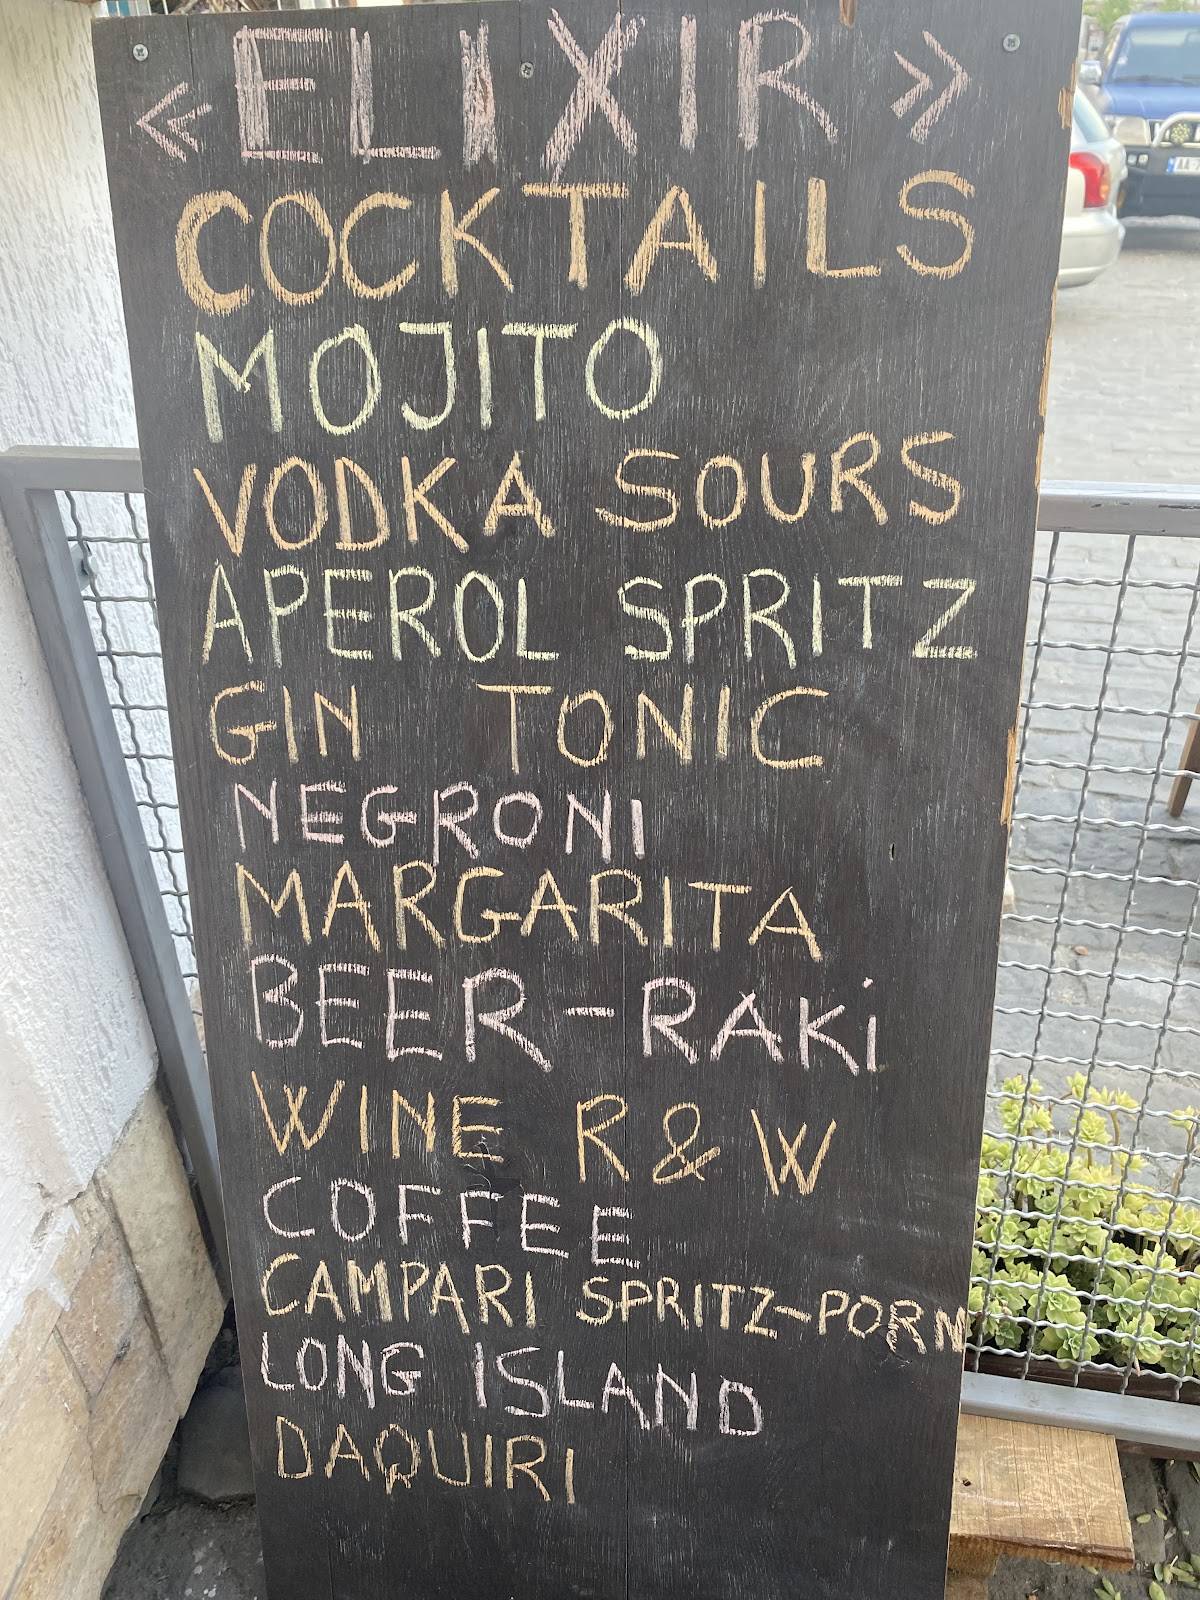 « ELIXIR »
COCKTAILS
MOJITO
VODKA SOURS
APEROL SPRITZ
GIN TONIC
NEGRONI
MARGARITA
BEER-RAKi
WINE R & W
COFFEE
CAMPARI SPRITZ-PORN
LONG ISLAND
DAQUIRI